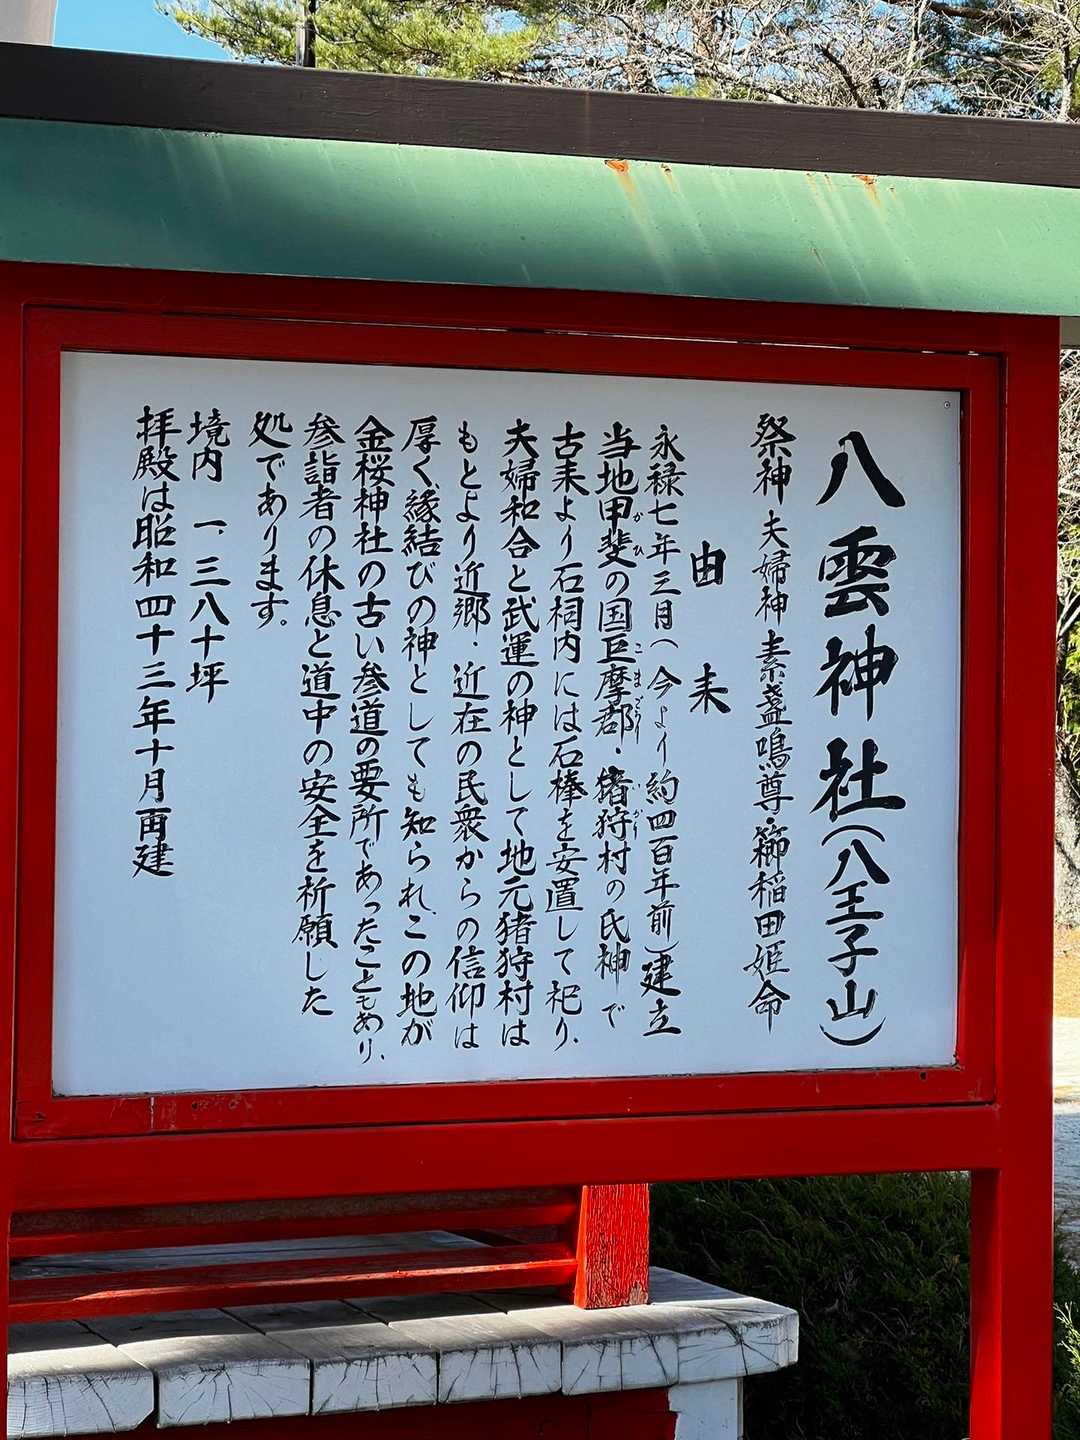 八雲神社(八王子山)
祭神 夫婦神 素盞鳴尊・櫛稲田姫命
由来
永禄七年三月(今より約四百年前)建立
当地甲斐の国巨摩郡・猪狩村の氏神で
古来より石祠内には石棒を安置して祀り、
夫婦和合と武運の神として地元猪狩村は
もとより近郷、近在の民衆からの信仰は
厚く、縁結びの神としても知られ、この地が
金桜神社の古い参道の要所であったこともあり、
参詣者の休息と道中の安全を祈願した
処であります。
境内 一、三八十坪
拝殿は昭和四十三年十月再建